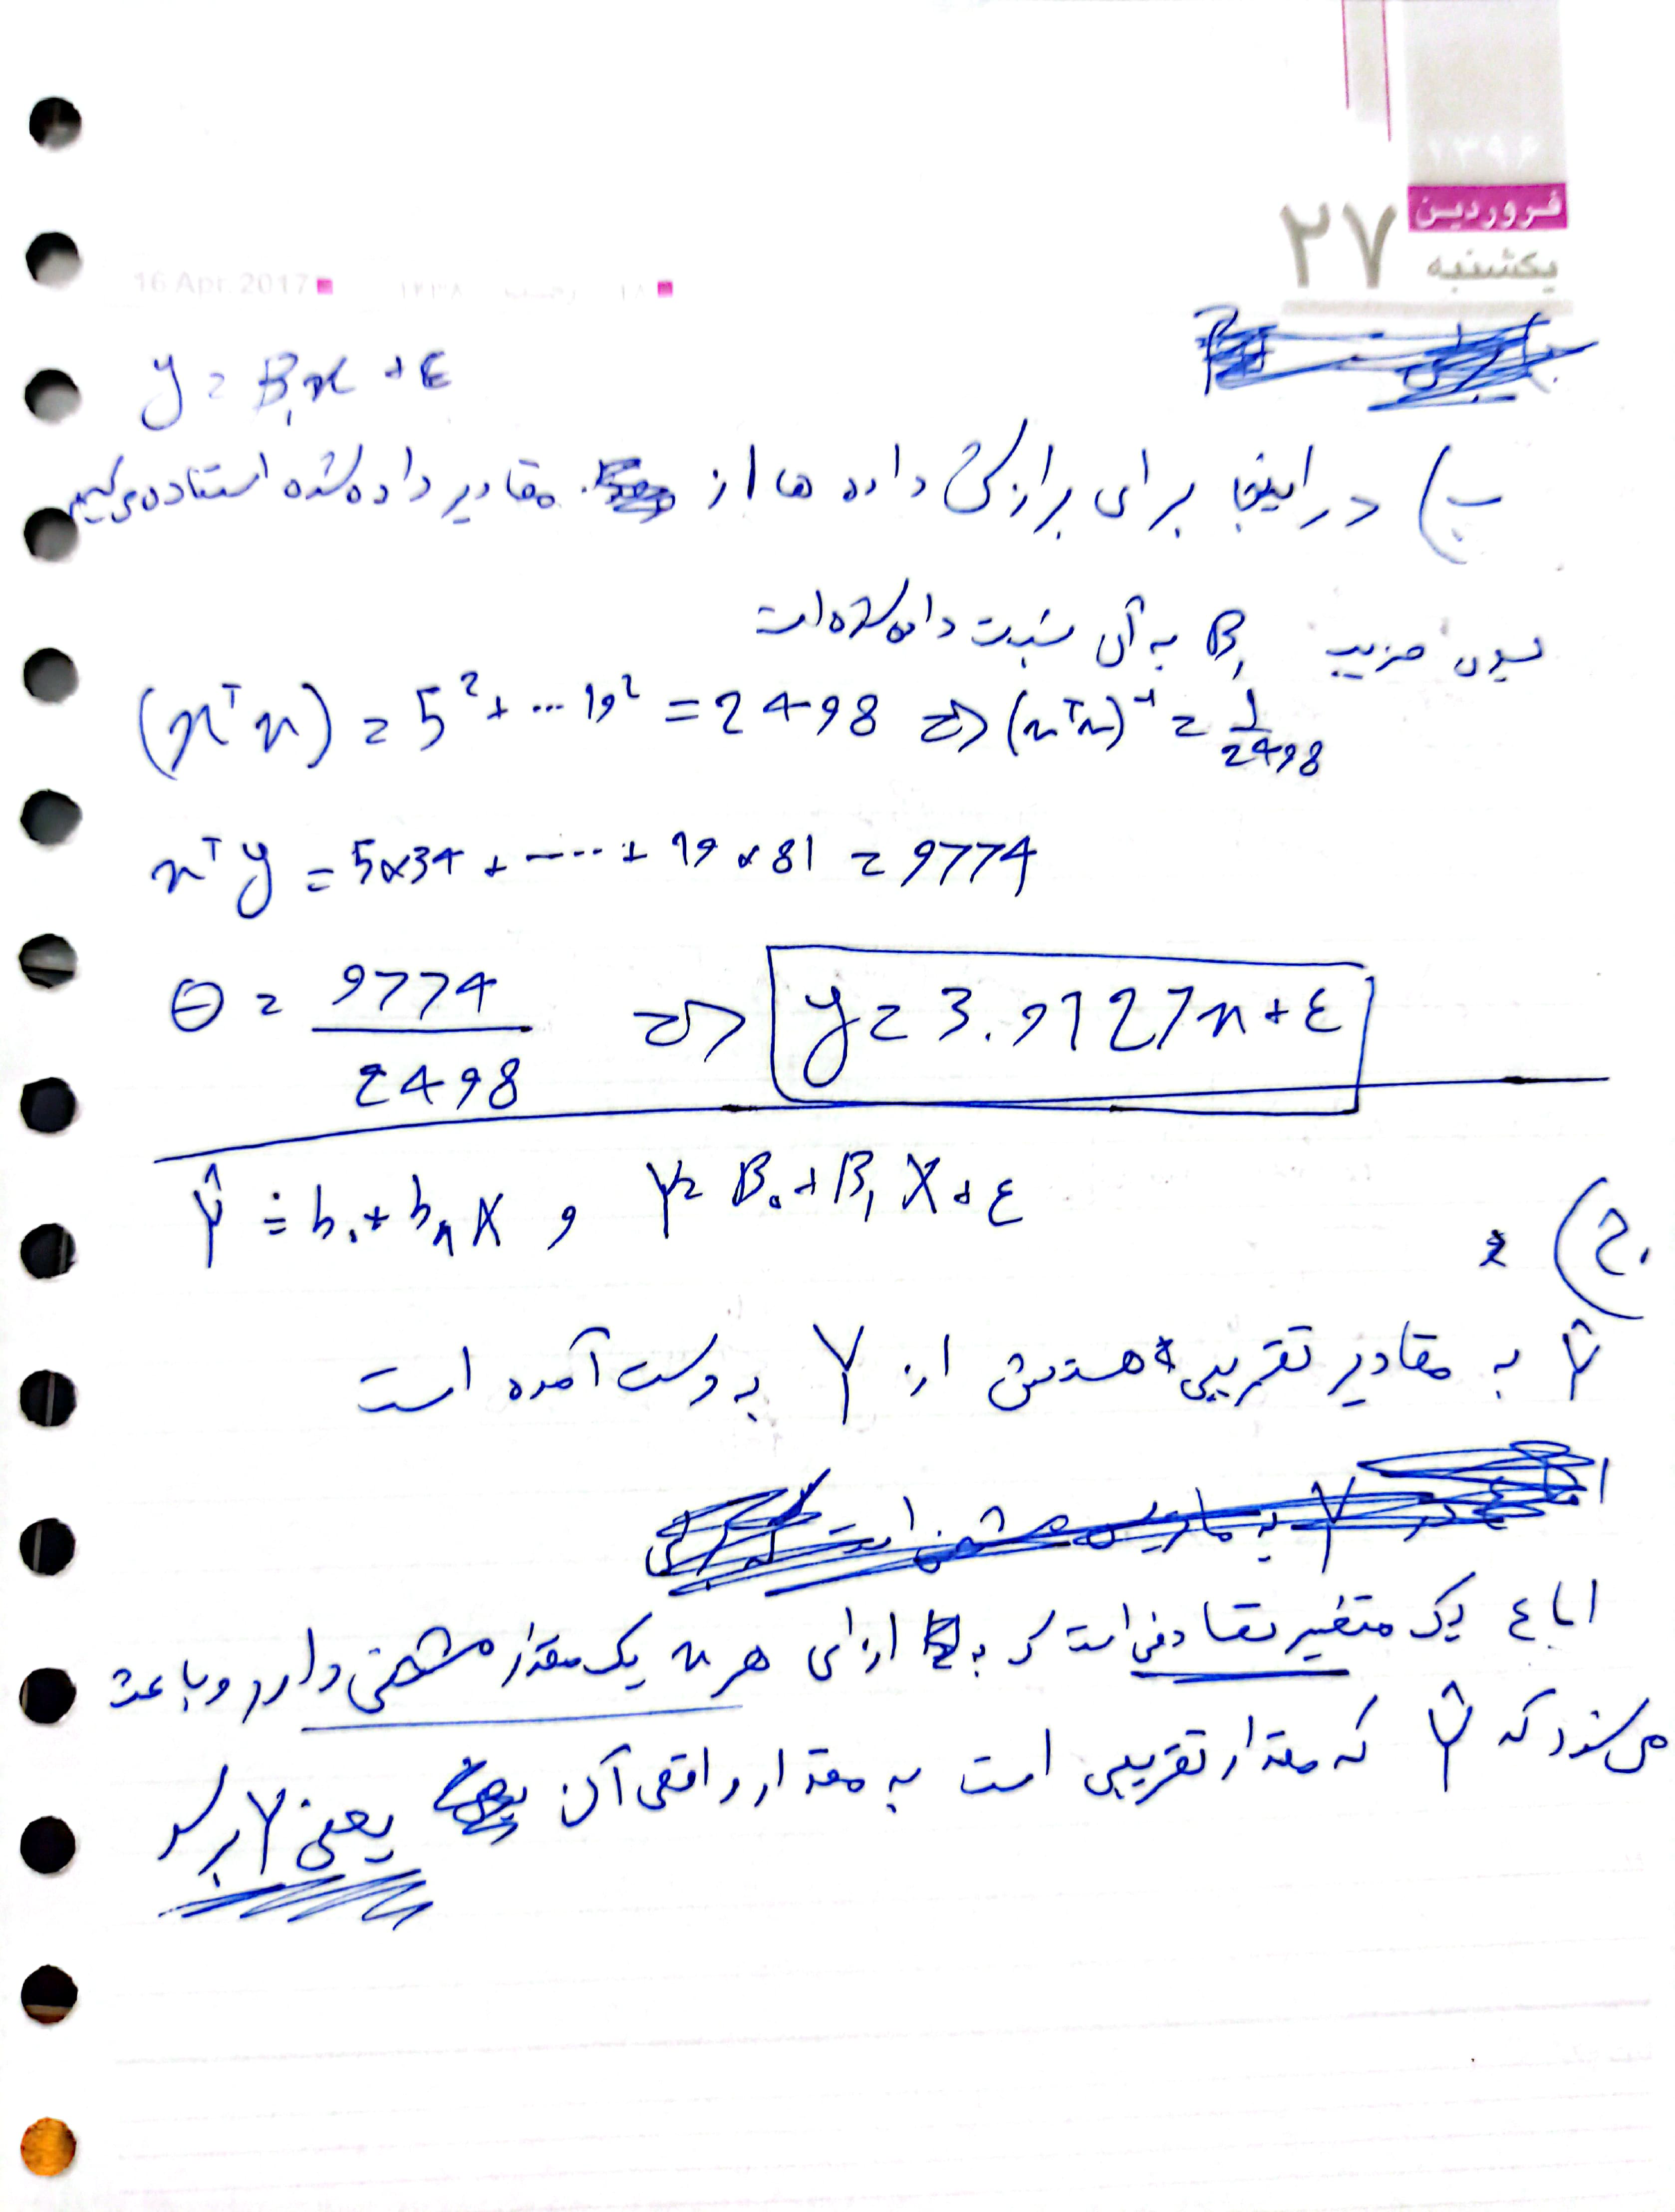 ۱۳۹۶
فروردین
۲۷ یکشنبه
16 Apr. 2017 ۱۴۳۸ ۱۸
y = B₁x + ε
ب) در اینجا برای برازش داده ها از مقادیر داده شده استفاده می‌کنیم
ضریب B₁ به آن نسبت داده شده است
(xᵀx) = 5² + ... 19² = 2498 => (xᵀx)⁻¹ = 1/2498
xᵀy = 5×34 + ----- + 19×81 = 9774
θ = 9774/2498 => y = 3.9127x + ε
ج) Ŷ = b₀ + b₁X , Y = B₀ + B₁X + ε
Ŷ به مقادیر تقریبی هستش از Y به دست آمده است
اما ε یک متغیر تصادفی است که به ازای هر x یک مقدار مشخصی دارد و باعث
می‌شود که Ŷ که مقدار تقریبی است به مقدار واقعی آن یعنی Y برسد